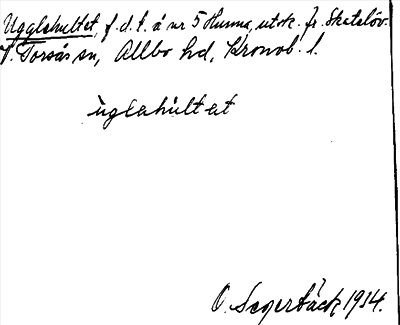 Ugglehultet, f.d.t. å nr 5 Hunna, utsk. fr. Skatelöv.
V. Torsås sn, Allbo hd, Kronob. l.
ùglahùltat
O. Segerbäck 1934.